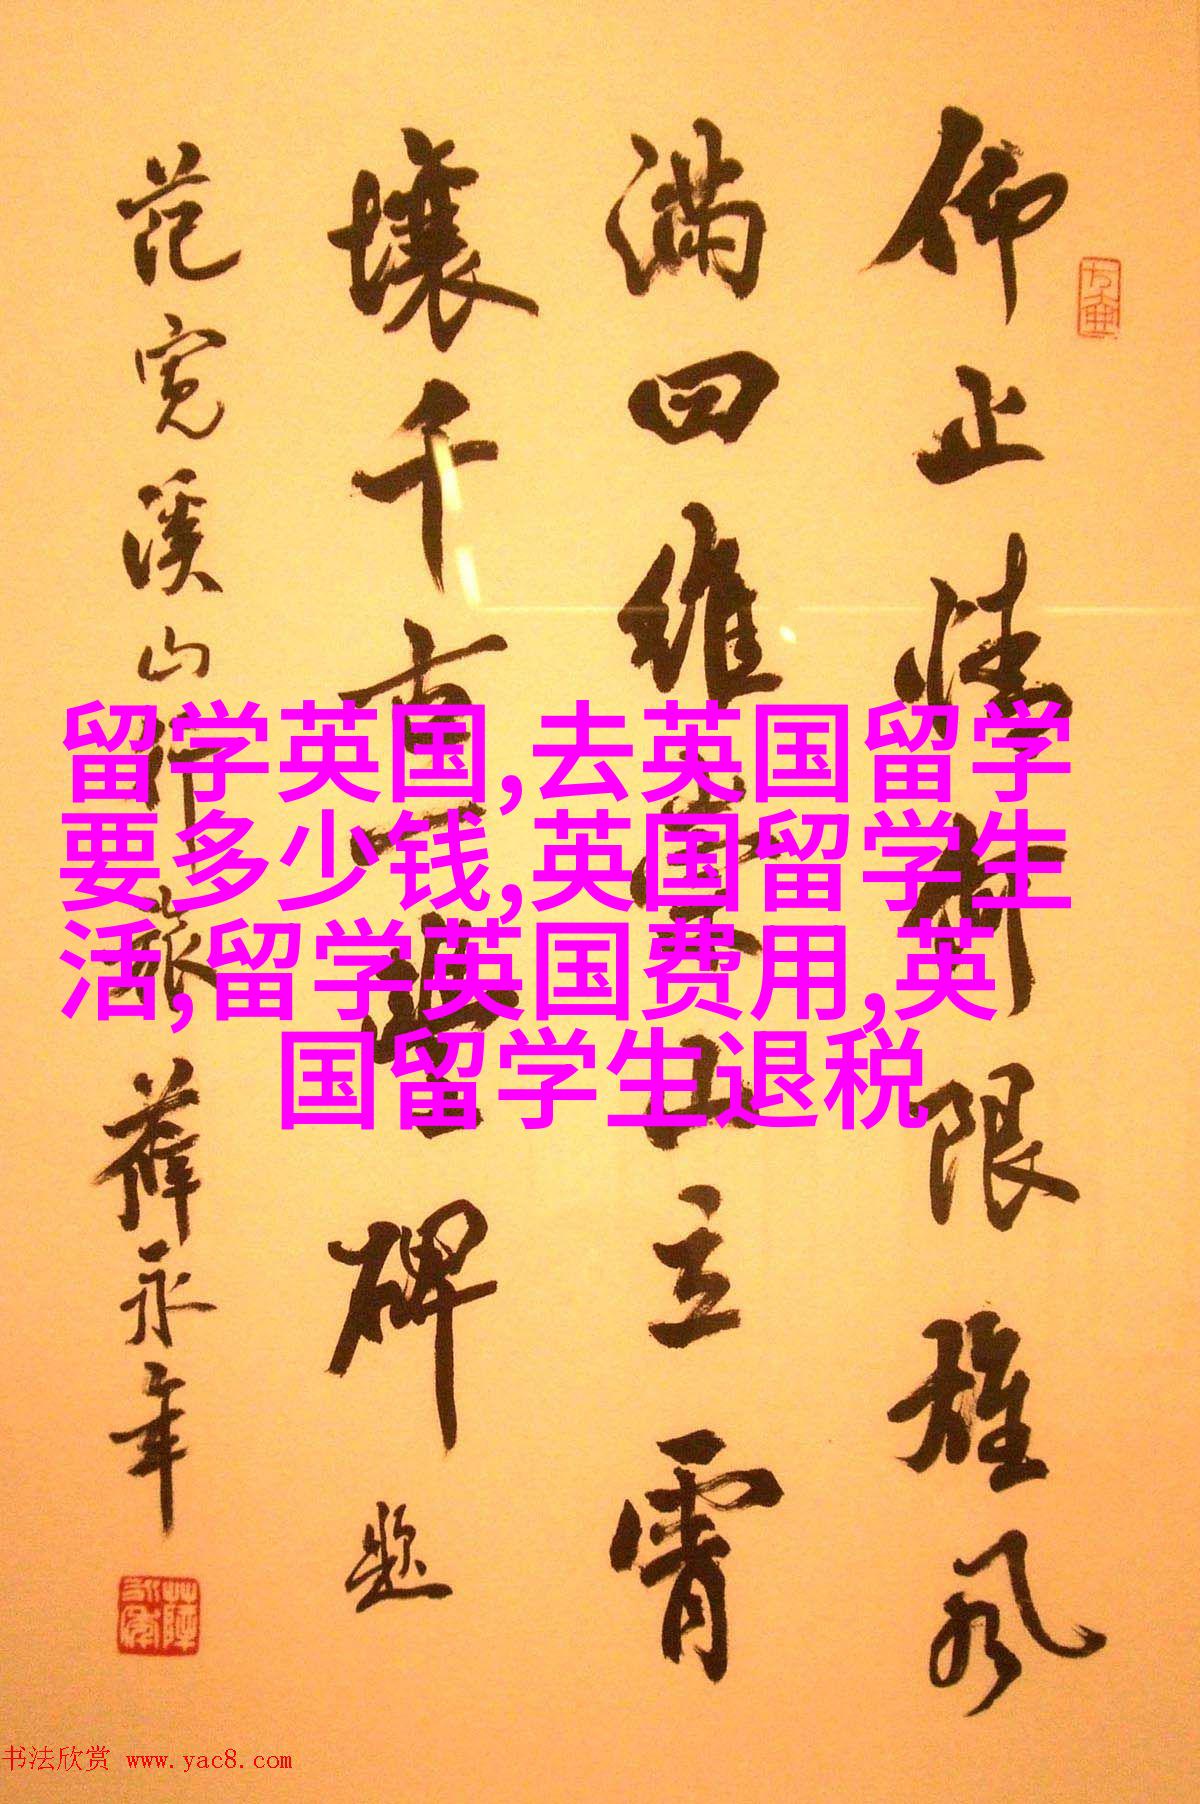 仰止情何限雄风
满四维崇山立霄
壤千古一豐碑题
范宽溪山行旅 薛永年
留学英国,去英国留学
要多少钱,英国留学生
活,留学英国费用,英
国留学生退税
书法欣赏 www.yac8.com